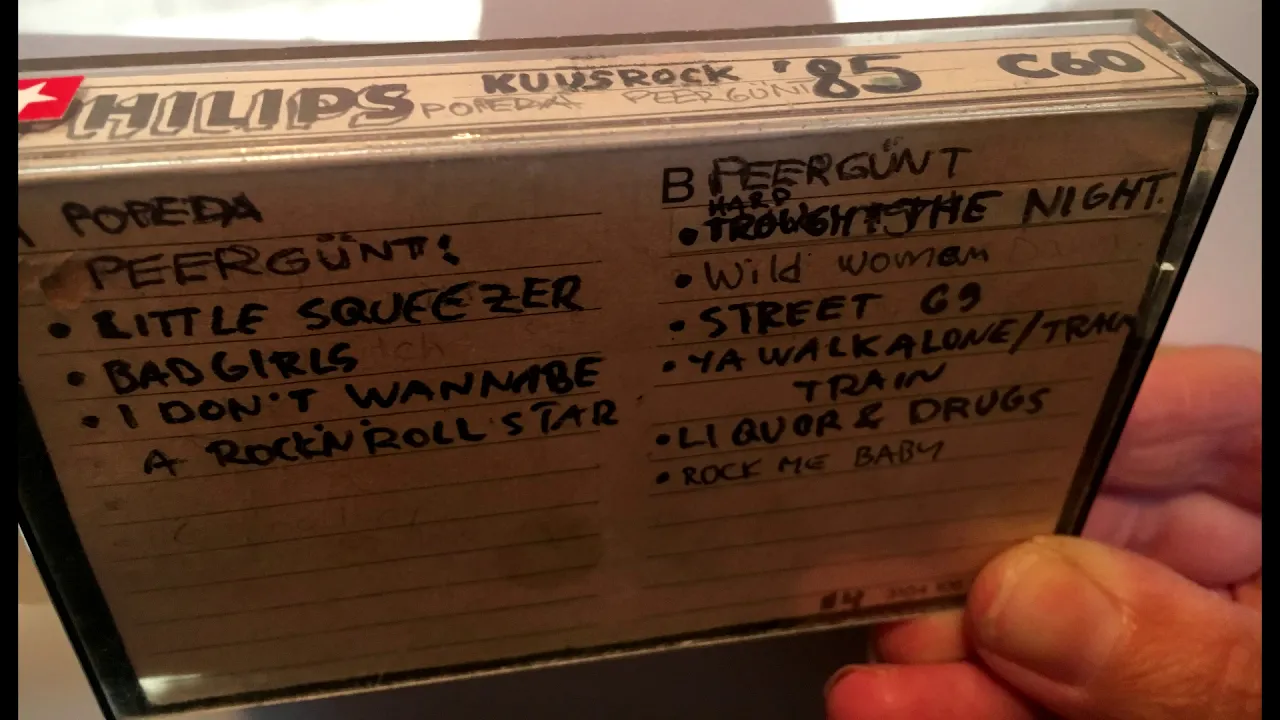 PHILIPS KUUSROCK '85 C60
POPEDA PEERGÜNT
A POPEDA
PEERGÜNT!
• LITTLE SQUEEZER
• BAD GIRLS
• I DON'T WANNABE
A ROCK'N'ROLL STAR
B PEERGÜNT
HARD
• THE NIGHT.
• Wild woman
• STREET 69
• YA WALK ALONE/TRAIN
TRAIN
• LIQUOR & DRUGS
• ROCK ME BABY